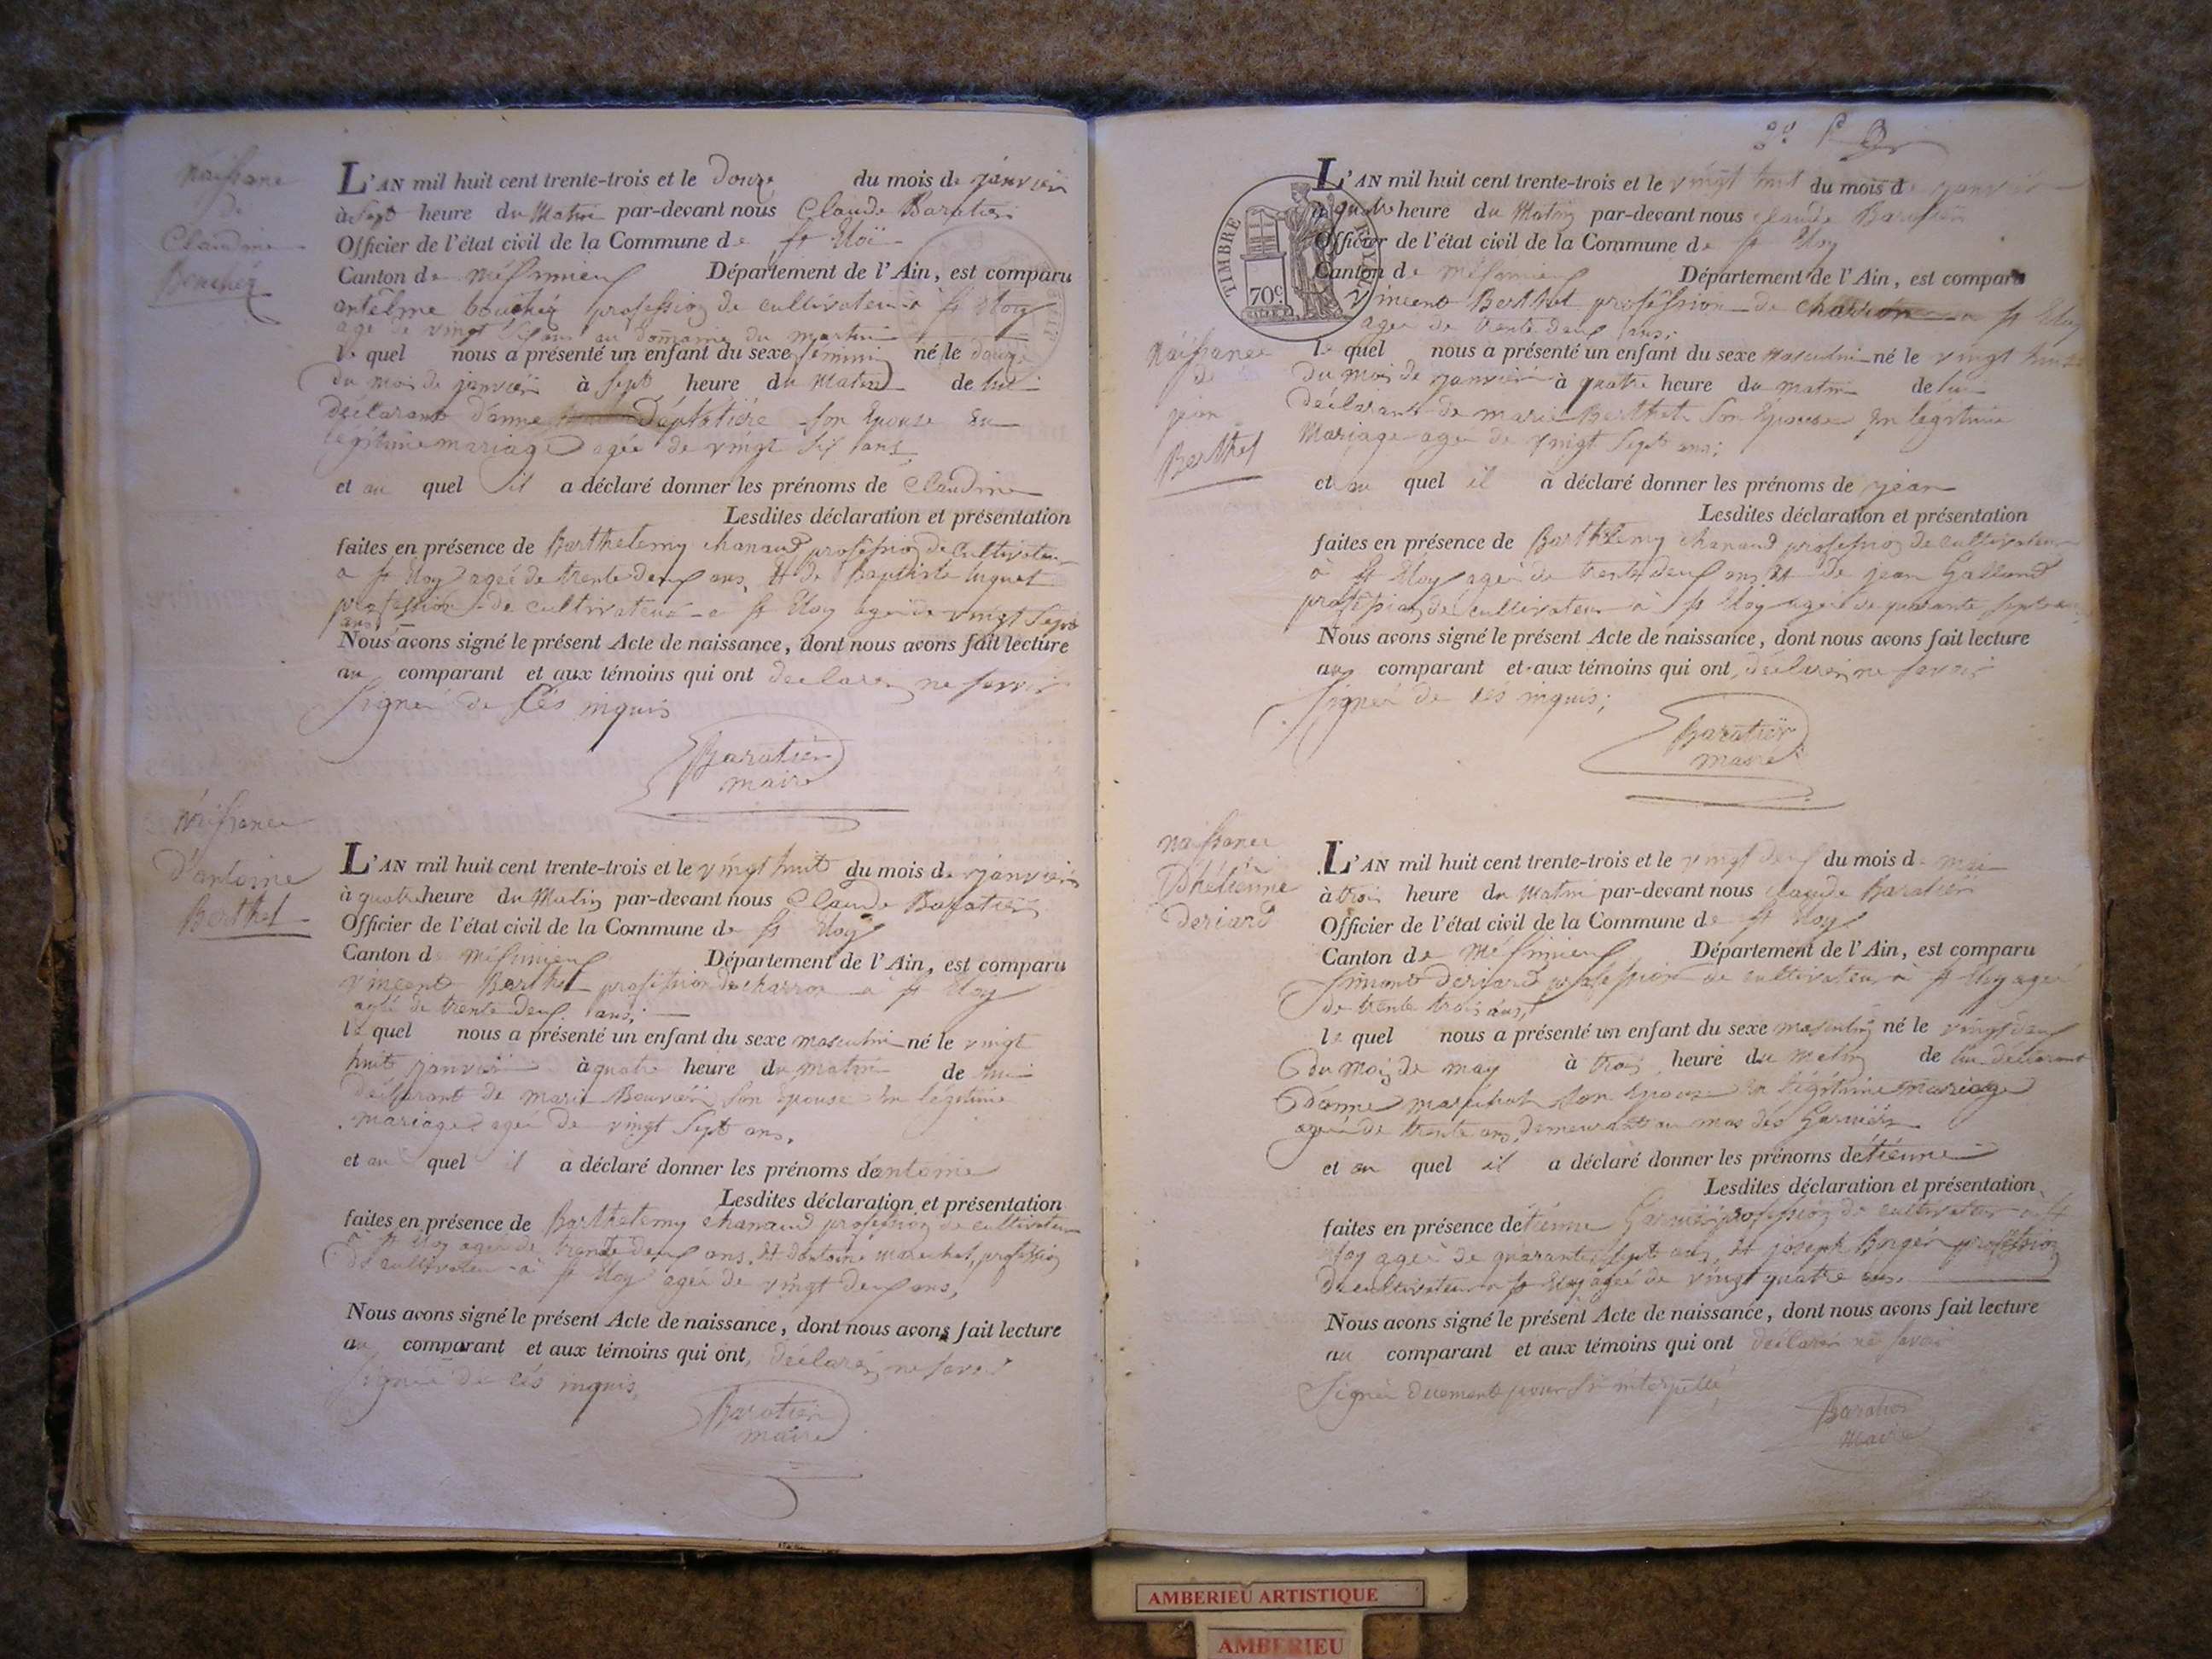 Naissance
de
Claudine
Boucher
L'AN mil huit cent trente-trois et le douze du mois de janvier
à sept heure du Matin par-devant nous Claude Baratier
Officier de l'état civil de la Commune de St Eloi
Canton de Méximieux Département de l'Ain, est comparu
antelme bouchér profession de cultivateur à St Eloy
agé de vingt six ans au Domaine du martin
le quel nous a présenté un enfant du sexe féminin né le douze
du mois de janvier à sept heure du Matin de lui
déclarant d'anne Daptotière son Epouse En
légitime mariage agée de vingt six ans
et au quel il a déclaré donner les prénoms de Claudine
Lesdites déclaration et présentation
faites en présence de Barthelemy chanaud profession de Cultivateur
a St Eloy ageé de trente deux ans, Et de Baptiste luquet
profession de cultivateur a St Eloy ageé de vingt sept
ans
Nous avons signé le présent Acte de naissance, dont nous avons fait lecture
au comparant et aux témoins qui ont déclaré ne savoir
Signer de ces inquis
Baratier
maire
Naissance
d'antoine
Berthet
L'AN mil huit cent trente-trois et le vingt huit du mois de janvier
à quatre heure du Matin par-devant nous Claude Baratier
Officier de l'état civil de la Commune de St Eloy
Canton de Méximieux Département de l'Ain, est comparu
vincent Berthet profession de charron a St Eloy
agé de trente deux ans;
le quel nous a présenté un enfant du sexe masculin né le vingt
huit janvier à quatre heure du matin de lui
déclarant de marie Bouvier son Epouse En légitime
mariage ageé de vingt sept ans,
et au quel il a déclaré donner les prénoms d'antoine
Lesdites déclaration et présentation
faites en présence de Barthelemy chanaud profession de cultivateur
a St Eloy ageé de trente deux ans, Et d'antoine marechal, profession
de cultivateur à St Eloy ageé de vingt deux ans,
Nous avons signé le présent Acte de naissance, dont nous avons fait lecture
au comparant et aux témoins qui ont, déclaré ne savoir
Signer de ces inquis,
Baratier
maire
TIMBRE ROYAL
70c
Naissance
de
jean
Berthet
L'AN mil huit cent trente-trois et le vingt huit du mois de janvier
à quatre heure du Matin par-devant nous claude Baratier
Officier de l'état civil de la Commune de St Eloy
Canton de Méximieux Département de l'Ain, est comparu
Vincent Berthet profession de charron a St Eloy
ageé de trente deux ans;
le quel nous a présenté un enfant du sexe masculin né le vingt huit
du mois de janvier à quatre heure du matin de lui
déclarant de marie Berthet son Epouse En légitime
Mariage ageé de vingt sept ans;
et au quel il a déclaré donner les prénoms de jean
Lesdites déclaration et présentation
faites en présence de Barthelemy chanaud profession de cultivateur
à St Eloy ageé de trente deux ans Et de jean Galland
profession de cultivateur à St Eloy ageé de quarante sept ans
Nous avons signé le présent Acte de naissance, dont nous avons fait lecture
au comparant et aux témoins qui ont déclaré ne savoir
Signer de ces inquis;
Baratier
maire
naissance
D'hétienne
Deriard
L'AN mil huit cent trente-trois et le vingt deux du mois de mai
à trois heure du Matin par-devant nous claude Baratier
Officier de l'état civil de la Commune de St Eloy
Canton de Méximieux Département de l'Ain, est comparu
Simont Deriard profession de cultivateur à St Eloy ageé
de trente trois ans,
le quel nous a présenté un enfant du sexe masculin né le vingt deux
du mois de may à trois heure du Matin de lui déclarant
d'anne maréchal son Epouse En légitime mariage
ageé de trente ans, demeurant au mas des Garniér
et au quel il a déclaré donner les prénoms détienne
Lesdites déclaration et présentation
faites en présence détienne Garniér profession de cultivateur à St
Eloy ageé de quarante sept ans, Et joseph Borgér profession
de cultivateur a St Eloy ageé de vingt quatre ans.
Nous avons signé le présent Acte de naissance, dont nous avons fait lecture
au comparant et aux témoins qui ont déclaré ne savoir
Signer duement pour ce interpellé
Baratier
Maire
AMBERIEU ARTISTIQUE
AMBERIEU